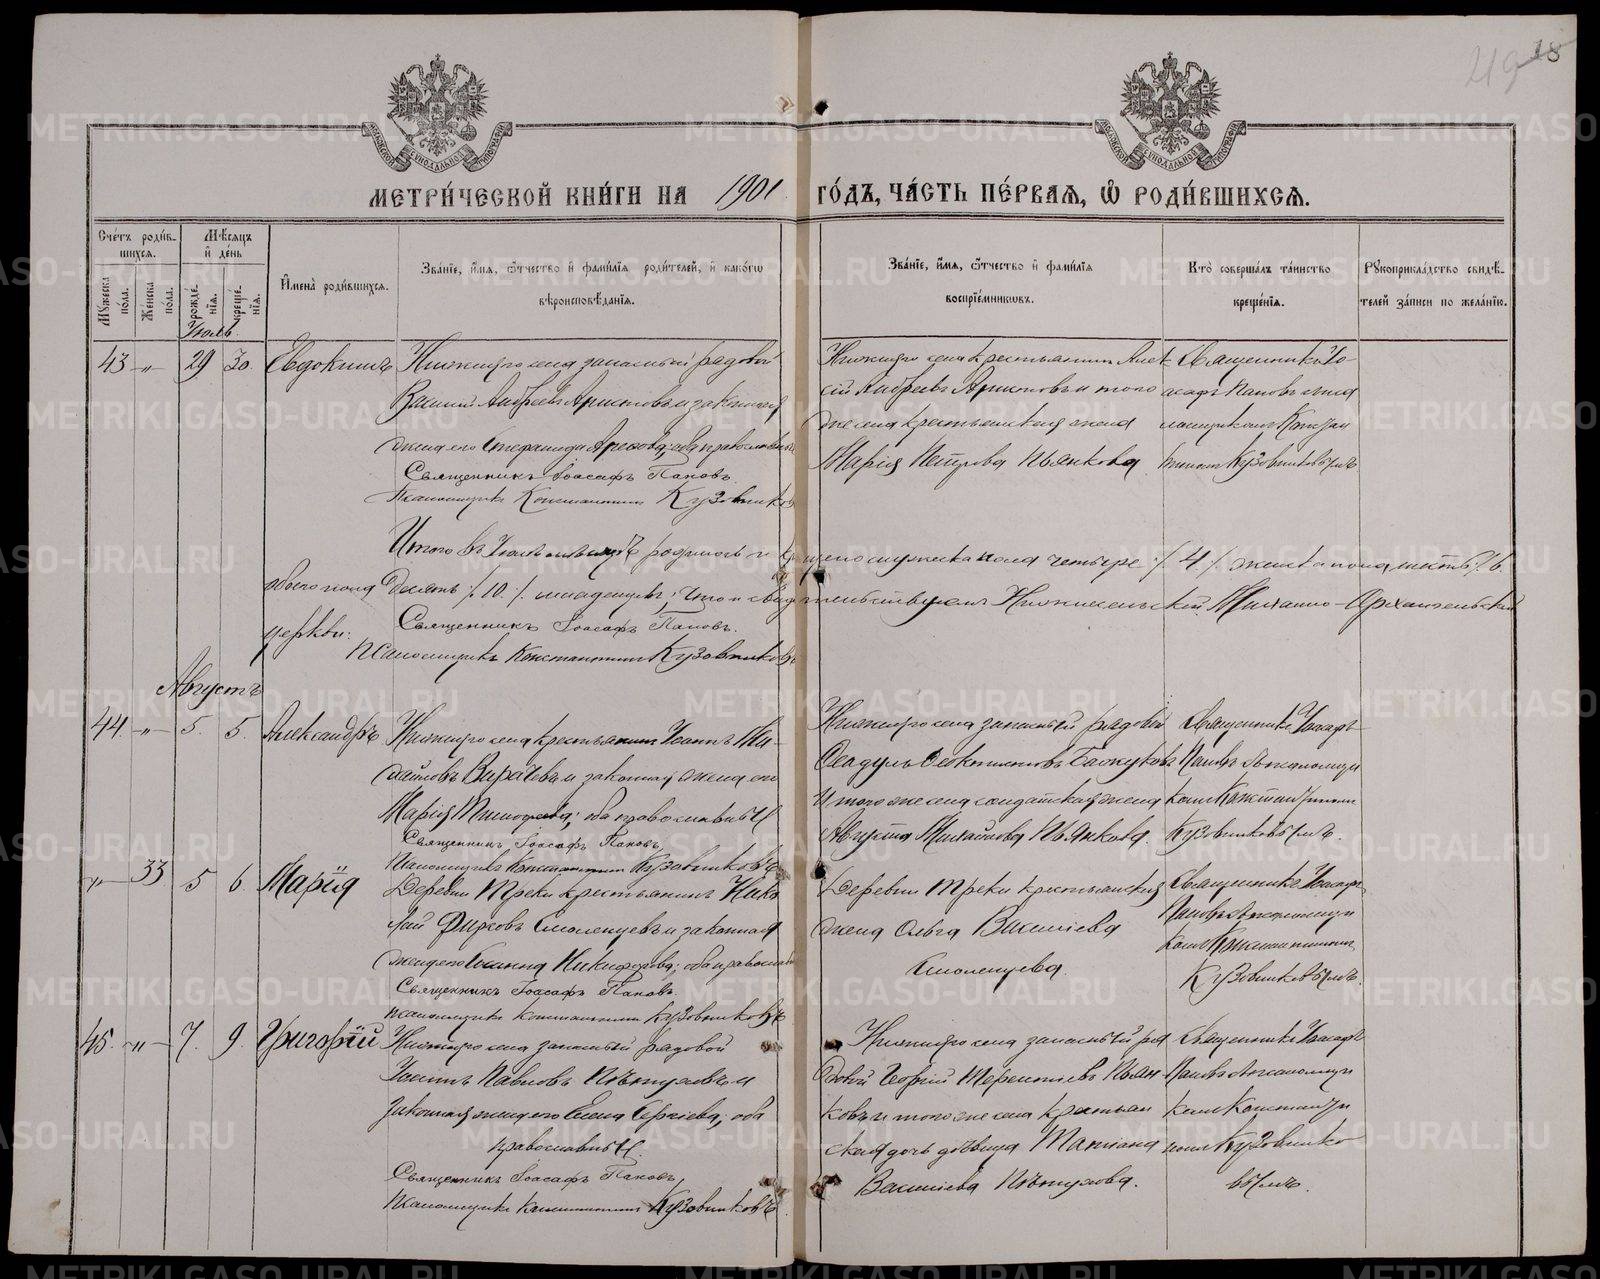 218
МЕТРИ́ЧЕСКОЙ КНИ́ГИ НА 1901 ГО́ДЪ, ЧА́СТЬ ПЕ́РВАЯ, Ѡ РОДИ́ВШИХСЯ.
Сче́тъ роди́в-
шихся.
Мѣ́сяцъ
и де́нь
Му́жеска по́ла.
Же́нска по́ла.
рожде́нїя.
креще́нїя.
И҆мена̀ роди́вшихся.
Зва́нїе, и҆́мя, ѻ҆́тчество и҆ фами́лїя роди́телей, и҆ како́гѡ
вѣроисповѣ́данїя.
Зва́нїе, и҆́мя, ѻ҆́тчество и҆ фами́лїя
воспрїе́мниковъ.
Кто̀ соверша́лъ та́инство
креще́нїя.
Рꙋкоприкла́дство свидѣ́-
телей за́писи по жела́нїю.
Іюль
43 -"- 29 30. Евдокимъ
Нижняго села запасный рядовой
Василій Андреевъ Аристовъ и законная
жена его Стефанида; оба православны
Священникъ Іоасафъ Пановъ.
Псаломщикъ Константинъ Кузовниковъ
Нижняго села крестьянинъ Алек-
сій Андреевъ Аристовъ и того
же села крестьянская жена
Марія Петрова Пьянкова
Священникъ Іо-
асафъ Пановъ съ пса
ломщикомъ Констан
тиномъ Кузовниковымъ
Итого въ Іюлѣ мѣсяцѣ родилось и крещено мужеска пола четыре /. 4 /. женска пола шесть /. 6.
обоего пола десять /. 10. /. младенцевъ, что и свидѣтельствуемъ Нижнесельской Михаило-Архангельской
церкви:
Священникъ Іоасафъ Пановъ.
Псаломщикъ Константинъ Кузовниковъ
Августъ
44 -"- 5. 5. Александръ
Нижняго села крестьянинъ Іоаннъ Ми-
хайловъ и законная жена его
Марія Тимофеева; оба православны
Священникъ Іоасафъ Пановъ,
Псаломщикъ Константинъ Кузовниковъ
Нижняго села запасный рядовой
и того же села солдатская жена
Августа Михайлова Пьянкова.
Священникъ Іоасафъ
Пановъ съ псаломщи
комъ Константиномъ
Кузовниковымъ.
-"- 33 5 6. Марія
Деревни Треки крестьянинъ Нико
лай Фирсовъ Смоленцевъ и законная
жена его Іоанна Никифорова; оба православн
Священникъ Іоасафъ Пановъ
Псаломщикъ Константинъ Кузовниковъ
Деревни Треки крестьянская
жена Ольга Василіева
Смоленцева.
Священникъ Іоасафъ
Пановъ съ псаломщи
комъ Константиномъ
Кузовниковымъ.
45. -"- 7. 9. Григорій
Нижняго села запасный рядовой
Іоаннъ Павловъ Пѣтуховъ и
законная жена его Елена Сергіева; оба
православны.
Священникъ Іоасафъ Пановъ,
Псаломщикъ Константинъ Кузовниковъ
Нижняго села запасный ря
довой Георгій Терентіевъ Пьян-
ковъ и того же села крестьян
ская дочь дѣвица Татіана
Василіева Пѣтухова.
Священникъ Іоасафъ
Пановъ съ псаломщи
комъ Константи
номъ Кузовнико
вымъ.
METRIKI.GASO-URAL.RU